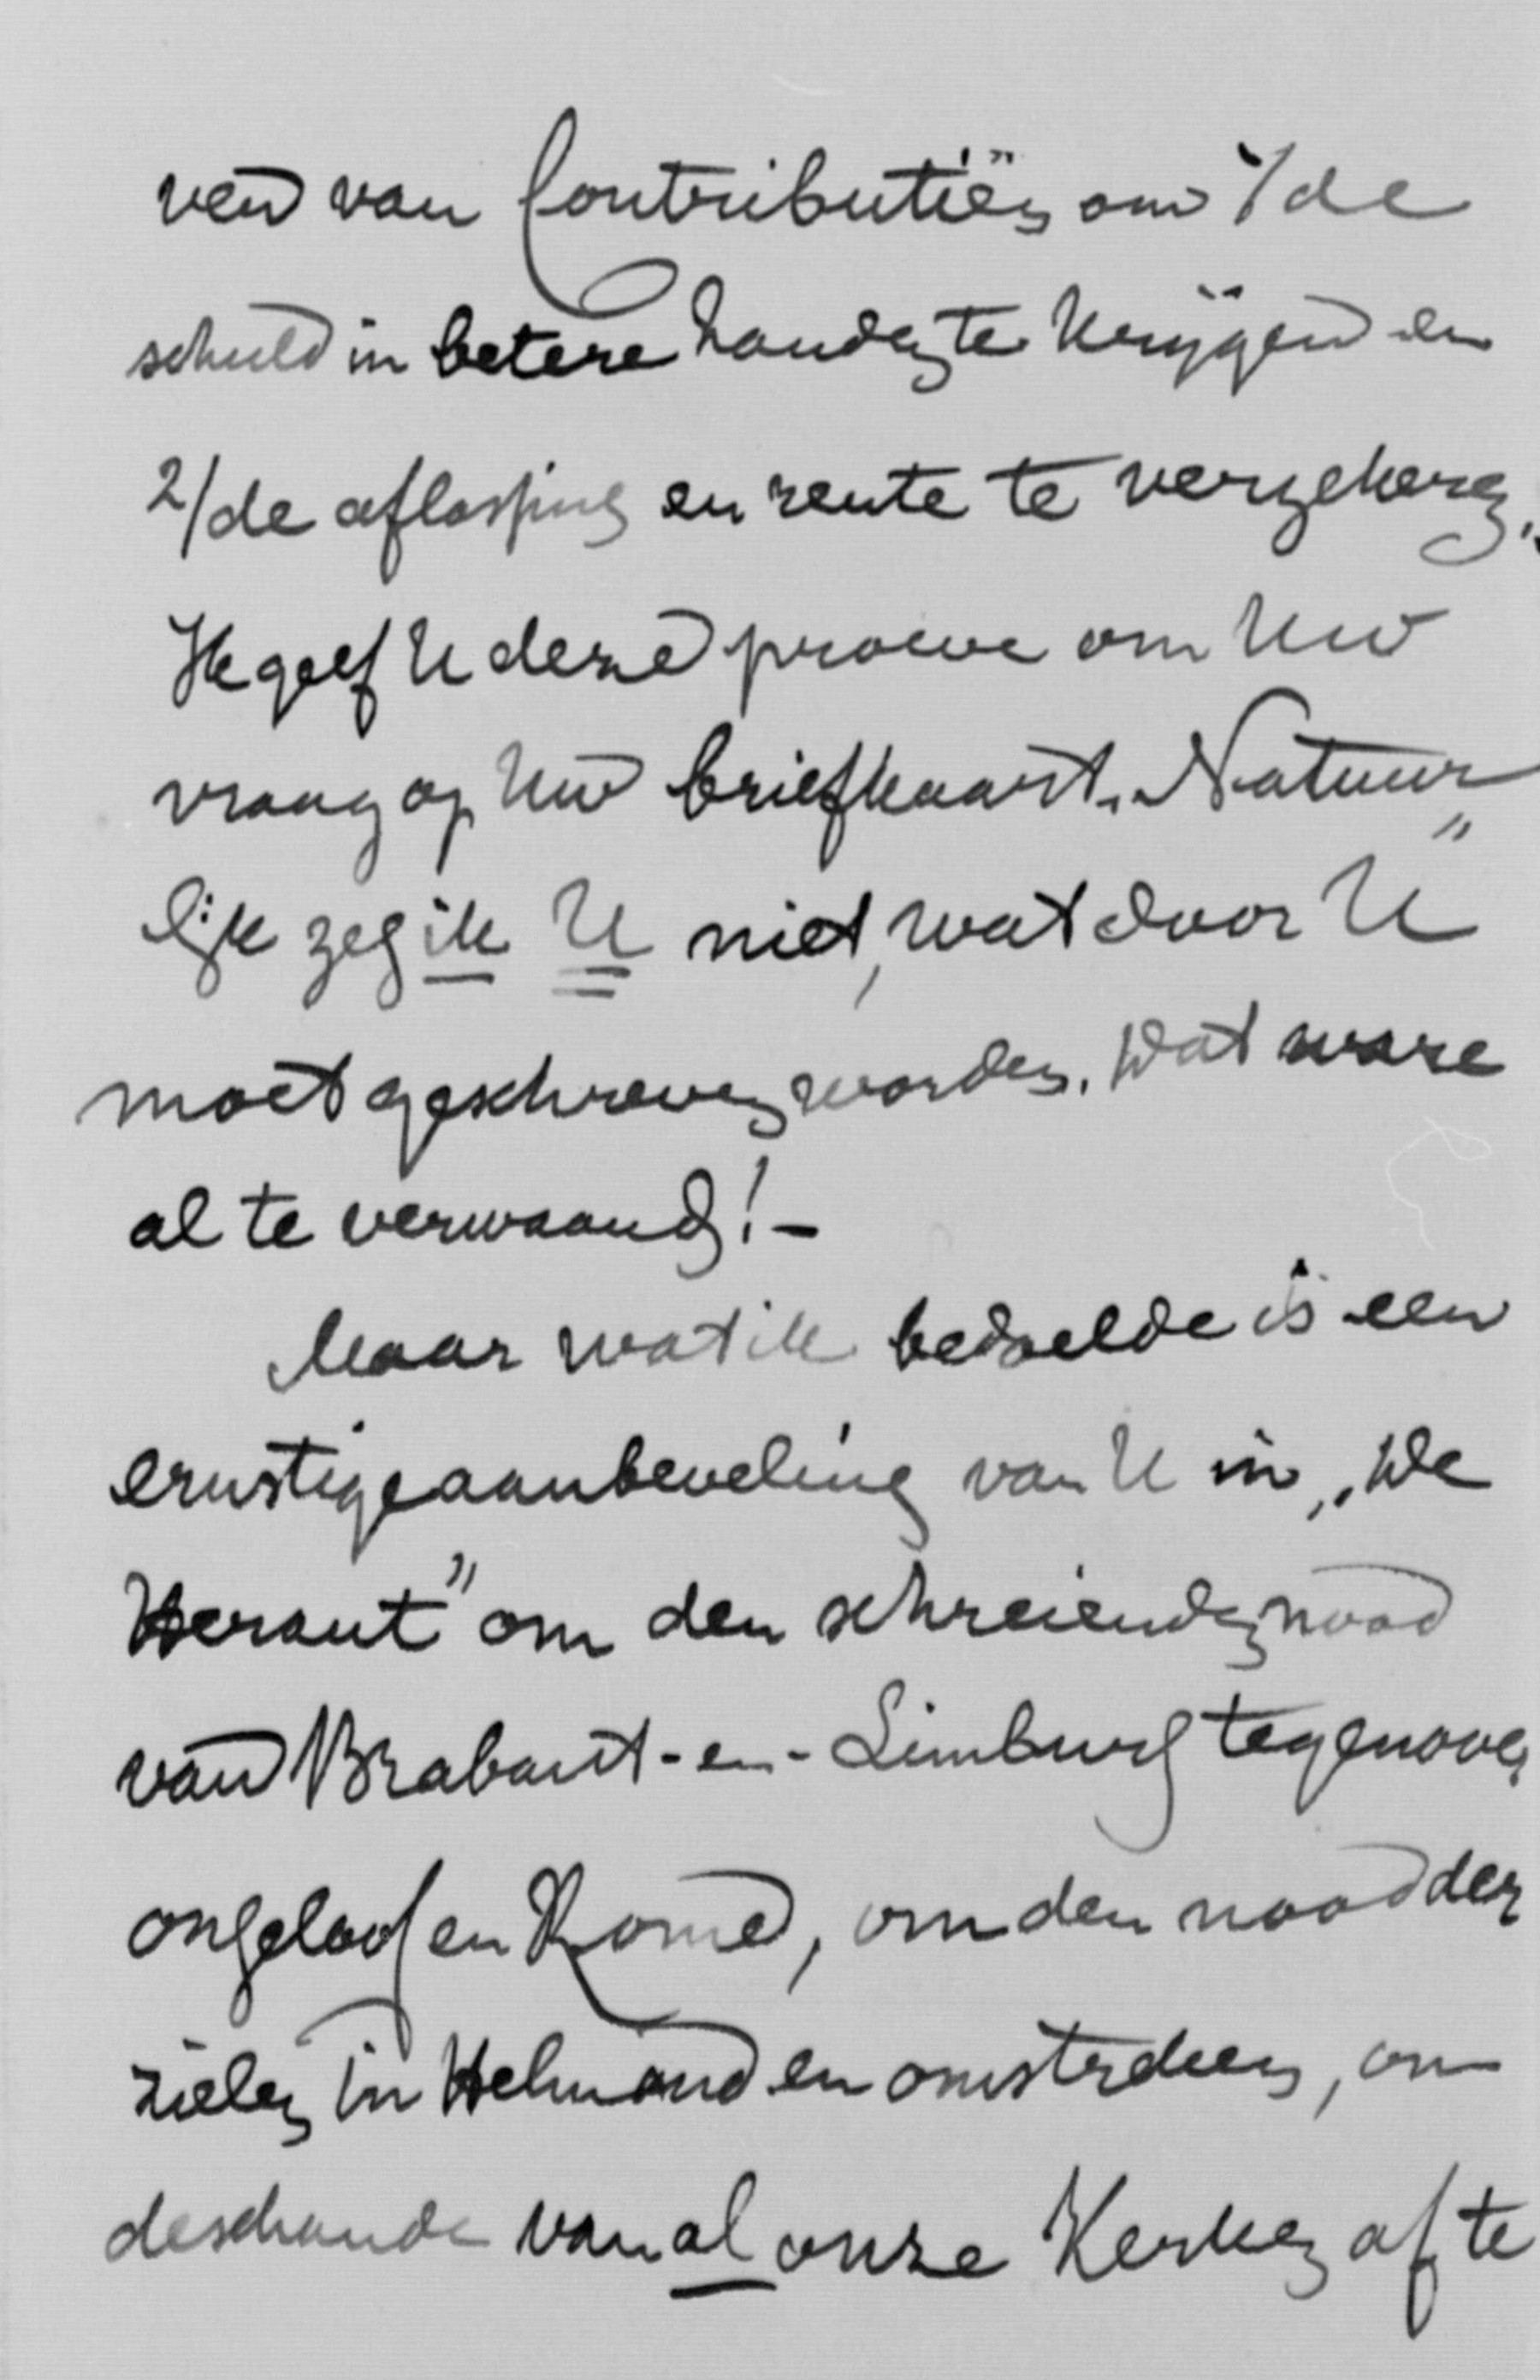 ven van Contributiën om 1/ de
schuld in betere handen te krijgen en
2/ de aflossing en rente te verzekeren.
Ik geef U deze proeve om Uw
vraag op Uw briefkaart. Natuur„
lijk zeg ik U niet, wat door U
moet geschreven worden. Dat ware
al te verwaand! -
Maar wat ik bedoelde is een
ernstige aanbeveling van U in „De
Heraut” om den schreienden nood
van Brabant-en-Limburg tegenover
ongeloof en Rome, om den nood der
zielen in Helmond en omstreken, om
de schande van al onze Kerken af te